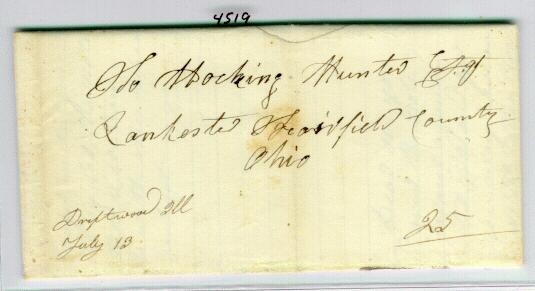 4519
To Hocking Hunter Esqr
Lankester Fairfield County
Ohio
Driftwood Ill
July 13
25